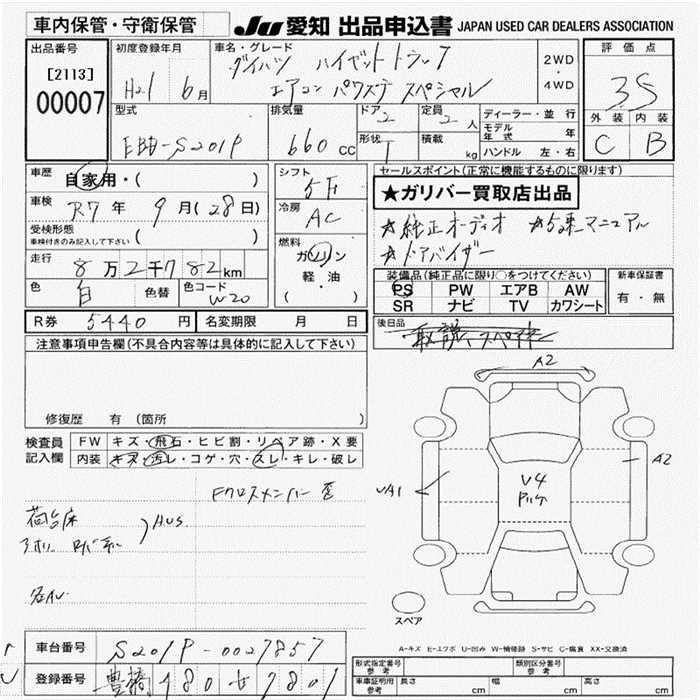 車内保管・守衛保管 JU 愛知 出品申込書 JAPAN USED CAR DEALERS ASSOCIATION
出品番号 初度登録年月 車名・グレード 評価点
[2113] H21 6月 ダイハツ ハイゼットトラック 2WD ・ 4WD 3.5
00007 エアコン パワステ スペシャル 外装 内装
型式 排気量 ドア 2 定員 2人 ディーラー・並行 C B
EBD-S201P 660cc 形状 1 積載 kg モデル年式 年
ハンドル 左・右
車歴 自家用・( ) シフト 5F セールスポイント(正常に機能するものに限ります)
車検 R7年 9月(28日) 冷房 AC ★ガリバー買取店出品
受検形態 ( ) ☆純正オーディオ ☆5速マニュアル
車検付きのみ記入して下さい 燃料 ☆ドアバイザー
走行 8万2千782km ガソリン 軽・油 ( ) 装備品(純正品に限り○をつけてください) 新車保証書
色 白 色替 色コード W20 PS PW エアB AW 有・無
SR ナビ TV カワシート
R券 5440円 名変期限 月 日 後日品
注意事項申告欄(不具合内容等は具体的に記入して下さい) 取説、スペキー
修復歴 有 (箇所 )
検査員 FW キズ・飛石・ヒビ割・リペア跡・X要
記入欄 内装 キズ・汚レ・コゲ・穴・スレ・キレ・破レ
Fクロスメンバー歪
荷台床
A.U.S
A2
UA1
A2
V4
スペア
A-キズ E-エクボ U-凹み W-補修跡 S-サビ C-腐食 XX-交換済
車台番号 S201P-0027857 形式指定番号 参考 類別区分番号 参考
登録番号 豊橋 480 せ 7801 車庫証明用 参考 長さ cm 幅 cm 高さ cm